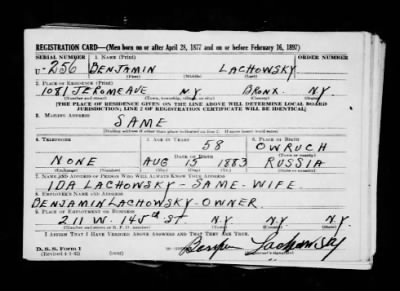 REGISTRATION CARD—(Men born on or after April 28, 1877 and on or before February 16, 1897)
SERIAL NUMBER 1. NAME (Print) ORDER NUMBER
U-256 BENJAMIN LACHOWSKY
(First) (Middle) (Last)
2. PLACE OF RESIDENCE (Print)
1081 JEROME AVE N.Y BRONX. N.Y.
(Number and street) (Town, township, village, or city) (County) (State)
[THE PLACE OF RESIDENCE GIVEN ON THE LINE ABOVE WILL DETERMINE LOCAL BOARD
JURISDICTION; LINE 2 OF REGISTRATION CERTIFICATE WILL BE IDENTICAL]
3. MAILING ADDRESS
SAME
[Mailing address if other than place indicated on line 2. If same insert word same]
4. TELEPHONE 5. AGE IN YEARS 6. PLACE OF BIRTH
58 OWRUCH
DATE OF BIRTH (Town or county)
NONE AUG 15 1883 RUSSIA
(Mo.) (Day) (Yr.) (State or country)
7. NAME AND ADDRESS OF PERSON WHO WILL ALWAYS KNOW YOUR ADDRESS
IDA LACHOWSKY-SAME-WIFE
8. EMPLOYER'S NAME AND ADDRESS
BENJAMIN LACHOWSKY-OWNER.
9. PLACE OF EMPLOYMENT OR BUSINESS
211 W. 145th ST N.Y N.Y N.Y.
(Number and street or R. F. D. number) (Town) (County) (State)
I AFFIRM THAT I HAVE VERIFIED ABOVE ANSWERS AND THAT THEY ARE TRUE.
D. S. S. Form 1
(Revised 4-1-42) (over) Benjamin Lachowsky